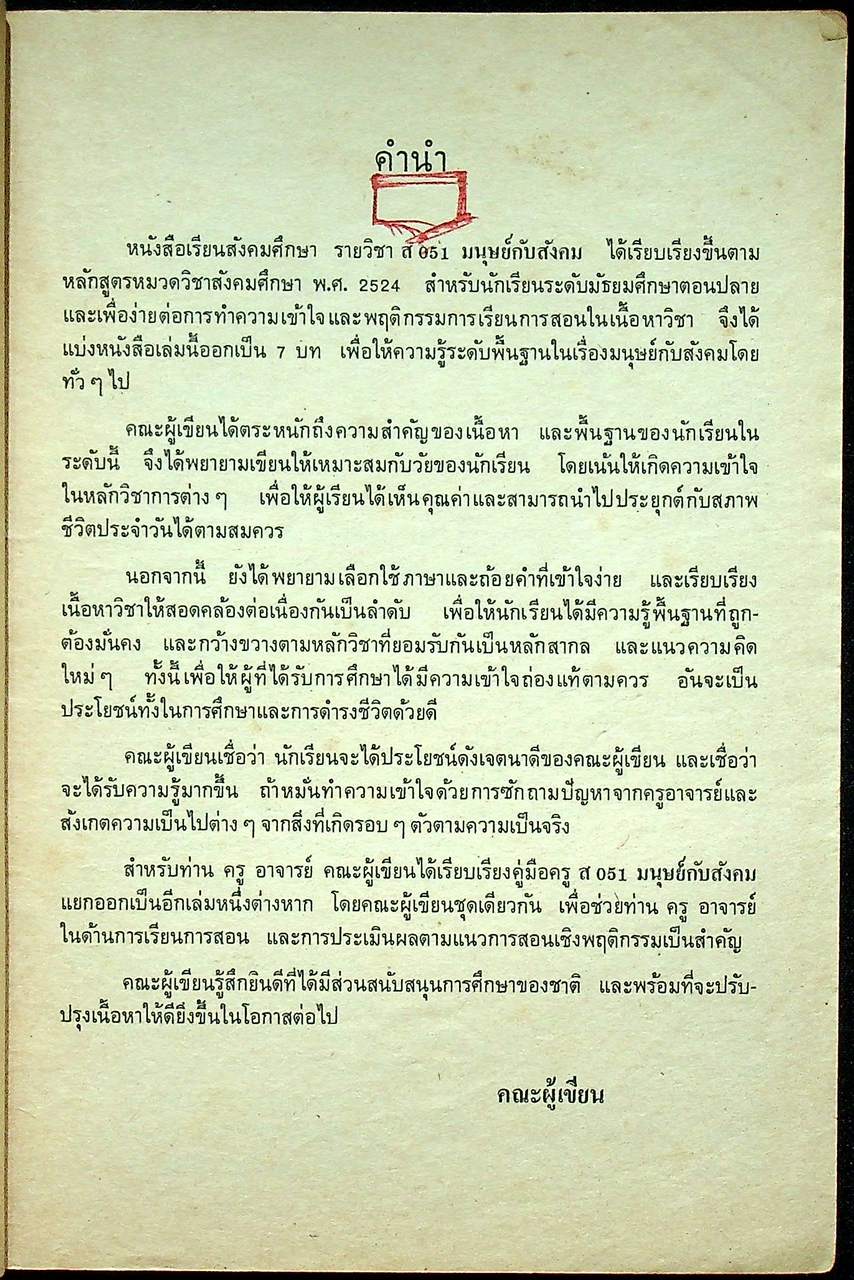 คำนำ
หนังสือเรียนสังคมศึกษา รายวิชา ส 051 มนุษย์กับสังคม ได้เรียบเรียงขึ้นตาม
หลักสูตรหมวดวิชาสังคมศึกษา พ.ศ. 2524 สำหรับนักเรียนระดับมัธยมศึกษาตอนปลาย
และเพื่อง่ายต่อการทำความเข้าใจและพฤติกรรมการเรียนการสอนในเนื้อหาวิชา จึงได้
แบ่งหนังสือเล่มนี้ออกเป็น 7 บท เพื่อให้ความรู้ระดับพื้นฐานในเรื่องมนุษย์กับสังคมโดย
ทั่ว ๆ ไป
คณะผู้เขียนได้ตระหนักถึงความสำคัญของเนื้อหา และพื้นฐานของนักเรียนใน
ระดับนี้ จึงได้พยายามเขียนให้เหมาะสมกับวัยของนักเรียน โดยเน้นให้เกิดความเข้าใจ
ในหลักวิชาการต่าง ๆ เพื่อให้ผู้เรียนได้เห็นคุณค่าและสามารถนำไปประยุกต์กับสภาพ
ชีวิตประจำวันได้ตามสมควร
นอกจากนี้ ยังได้พยายามเลือกใช้ภาษาและถ้อยคำที่เข้าใจง่าย และเรียบเรียง
เนื้อหาวิชาให้สอดคล้องต่อเนื่องกันเป็นลำดับ เพื่อให้นักเรียนได้มีความรู้พื้นฐานที่ถูก-
ต้องมั่นคง และกว้างขวางตามหลักวิชาที่ยอมรับกันเป็นหลักสากล และแนวความคิด
ใหม่ ๆ ทั้งนี้เพื่อให้ผู้ที่ได้รับการศึกษาได้มีความเข้าใจถ่องแท้ตามควร อันจะเป็น
ประโยชน์ทั้งในการศึกษาและการดำรงชีวิตด้วยดี
คณะผู้เขียนเชื่อว่า นักเรียนจะได้ประโยชน์ดังเจตนาดีของคณะผู้เขียน และเชื่อว่า
จะได้รับความรู้มากขึ้น ถ้าหมั่นทำความเข้าใจด้วยการซักถามปัญหาจากครูอาจารย์และ
สังเกตความเป็นไปต่าง ๆ จากสิ่งที่เกิดรอบ ๆ ตัวตามความเป็นจริง
สำหรับท่าน ครู อาจารย์ คณะผู้เขียนได้เรียบเรียงคู่มือครู ส 051 มนุษย์กับสังคม
แยกออกเป็นอีกเล่มหนึ่งต่างหาก โดยคณะผู้เขียนชุดเดียวกัน เพื่อช่วยท่าน ครู อาจารย์
ในด้านการเรียนการสอน และการประเมินผลตามแนวการสอนเชิงพฤติกรรมเป็นสำคัญ
คณะผู้เขียนรู้สึกยินดีที่ได้มีส่วนสนับสนุนการศึกษาของชาติ และพร้อมที่จะปรับ-
ปรุงเนื้อหาให้ดียิ่งขึ้นในโอกาสต่อไป
คณะผู้เขียน